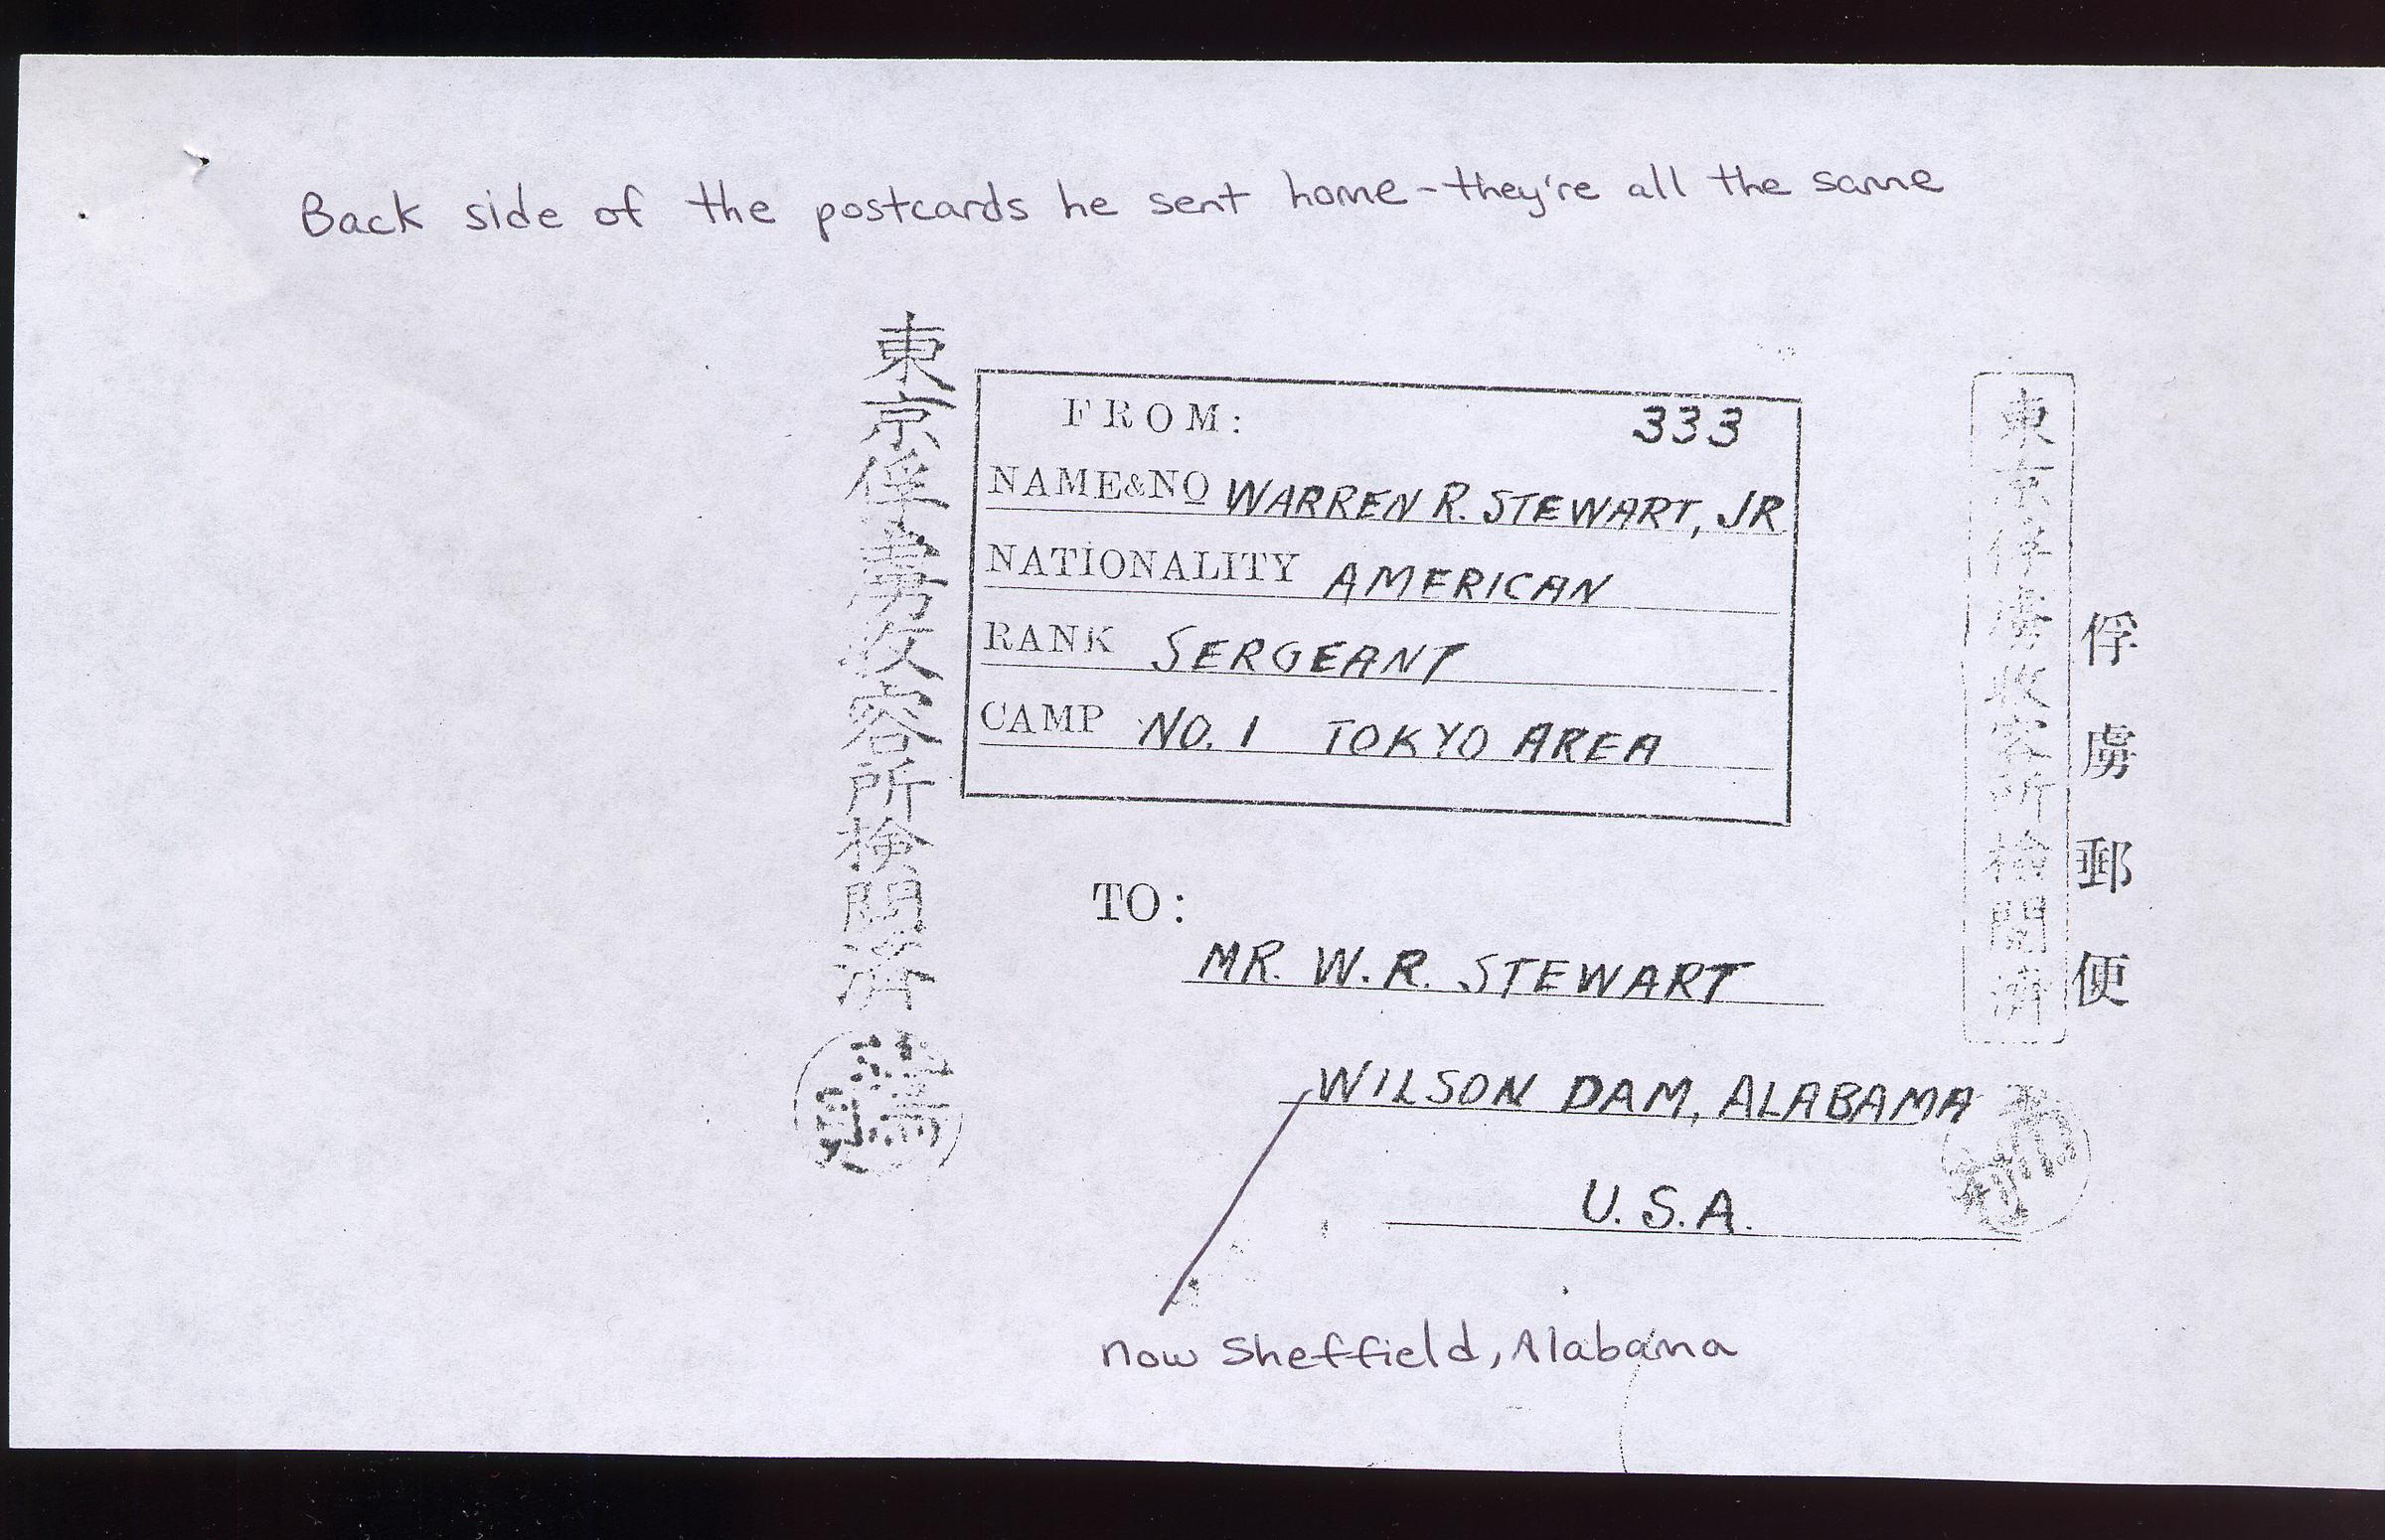 Back side of the postcards he sent home - they're all the same
東京俘虜収容所検閲済
FROM: 333
NAME&NO WARREN R. STEWART, JR
NATIONALITY AMERICAN
RANK SERGEANT
CAMP NO. 1 TOKYO AREA
東京俘虜收容所檢閲濟
俘虜郵便
TO:
MR. W. R. STEWART
WILSON DAM, ALABAMA
U. S. A.
now Sheffield, Alabama